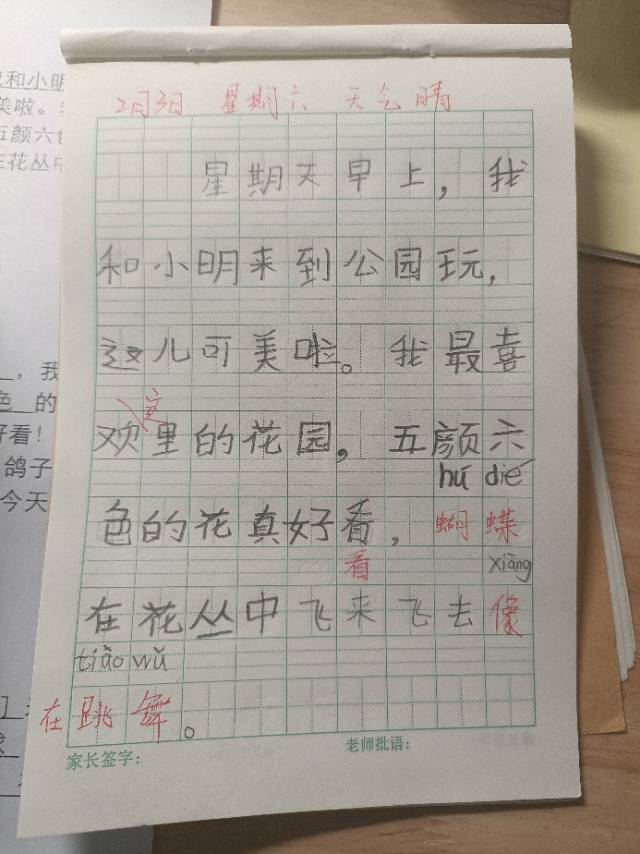 2月3日 星期六 天气晴
星期天早上，我
和小明来到公园玩，
这儿可美啦。我最喜
这
欢里的花园，五颜六
hú dié
色的花真好看，蝴蝶
看 xiàng
在花丛中飞来飞去像
tiào wǔ
在跳舞。
家长签字： 老师批语：
和小明
美啦。
颜六色
花丛中
，我
色 的
好看！
鸽子
今天